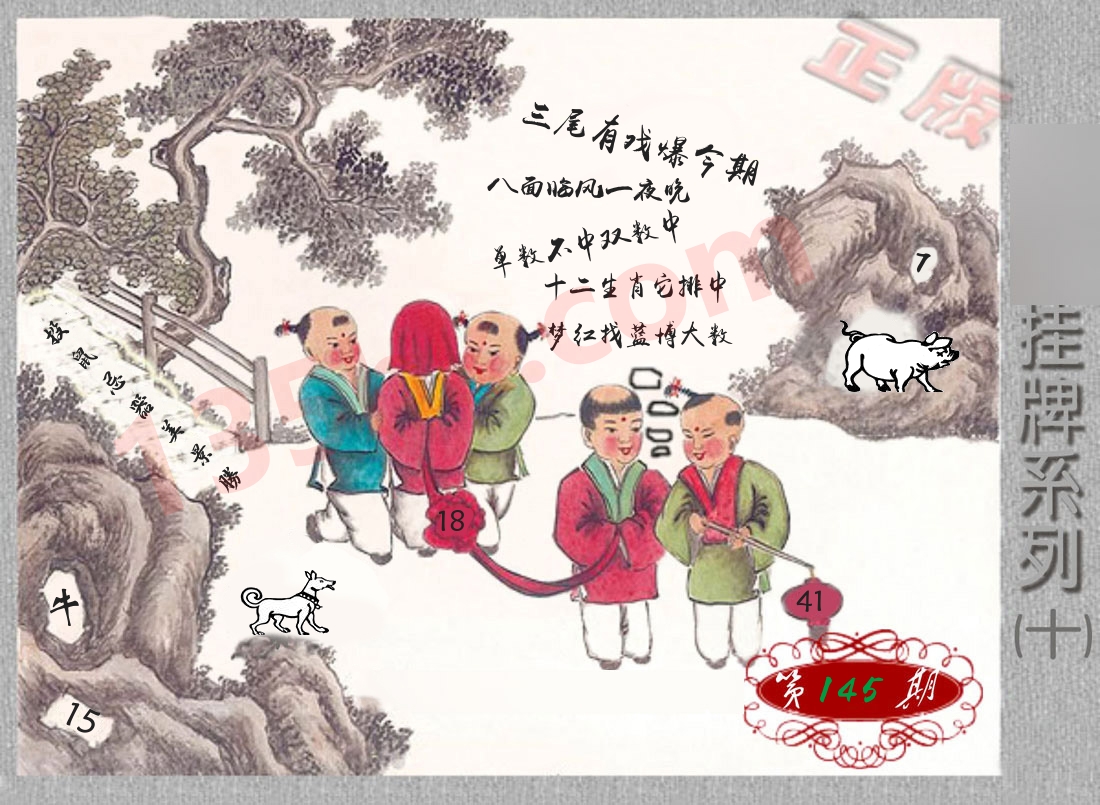 正版
三尾有戏爆今期
八面临风一夜晚
单数不中双数中
十二生肖它排中
梦红找蓝博大数
7
投鼠忌器美景勝
18
41
牛
15
第145期
挂牌系列(十)